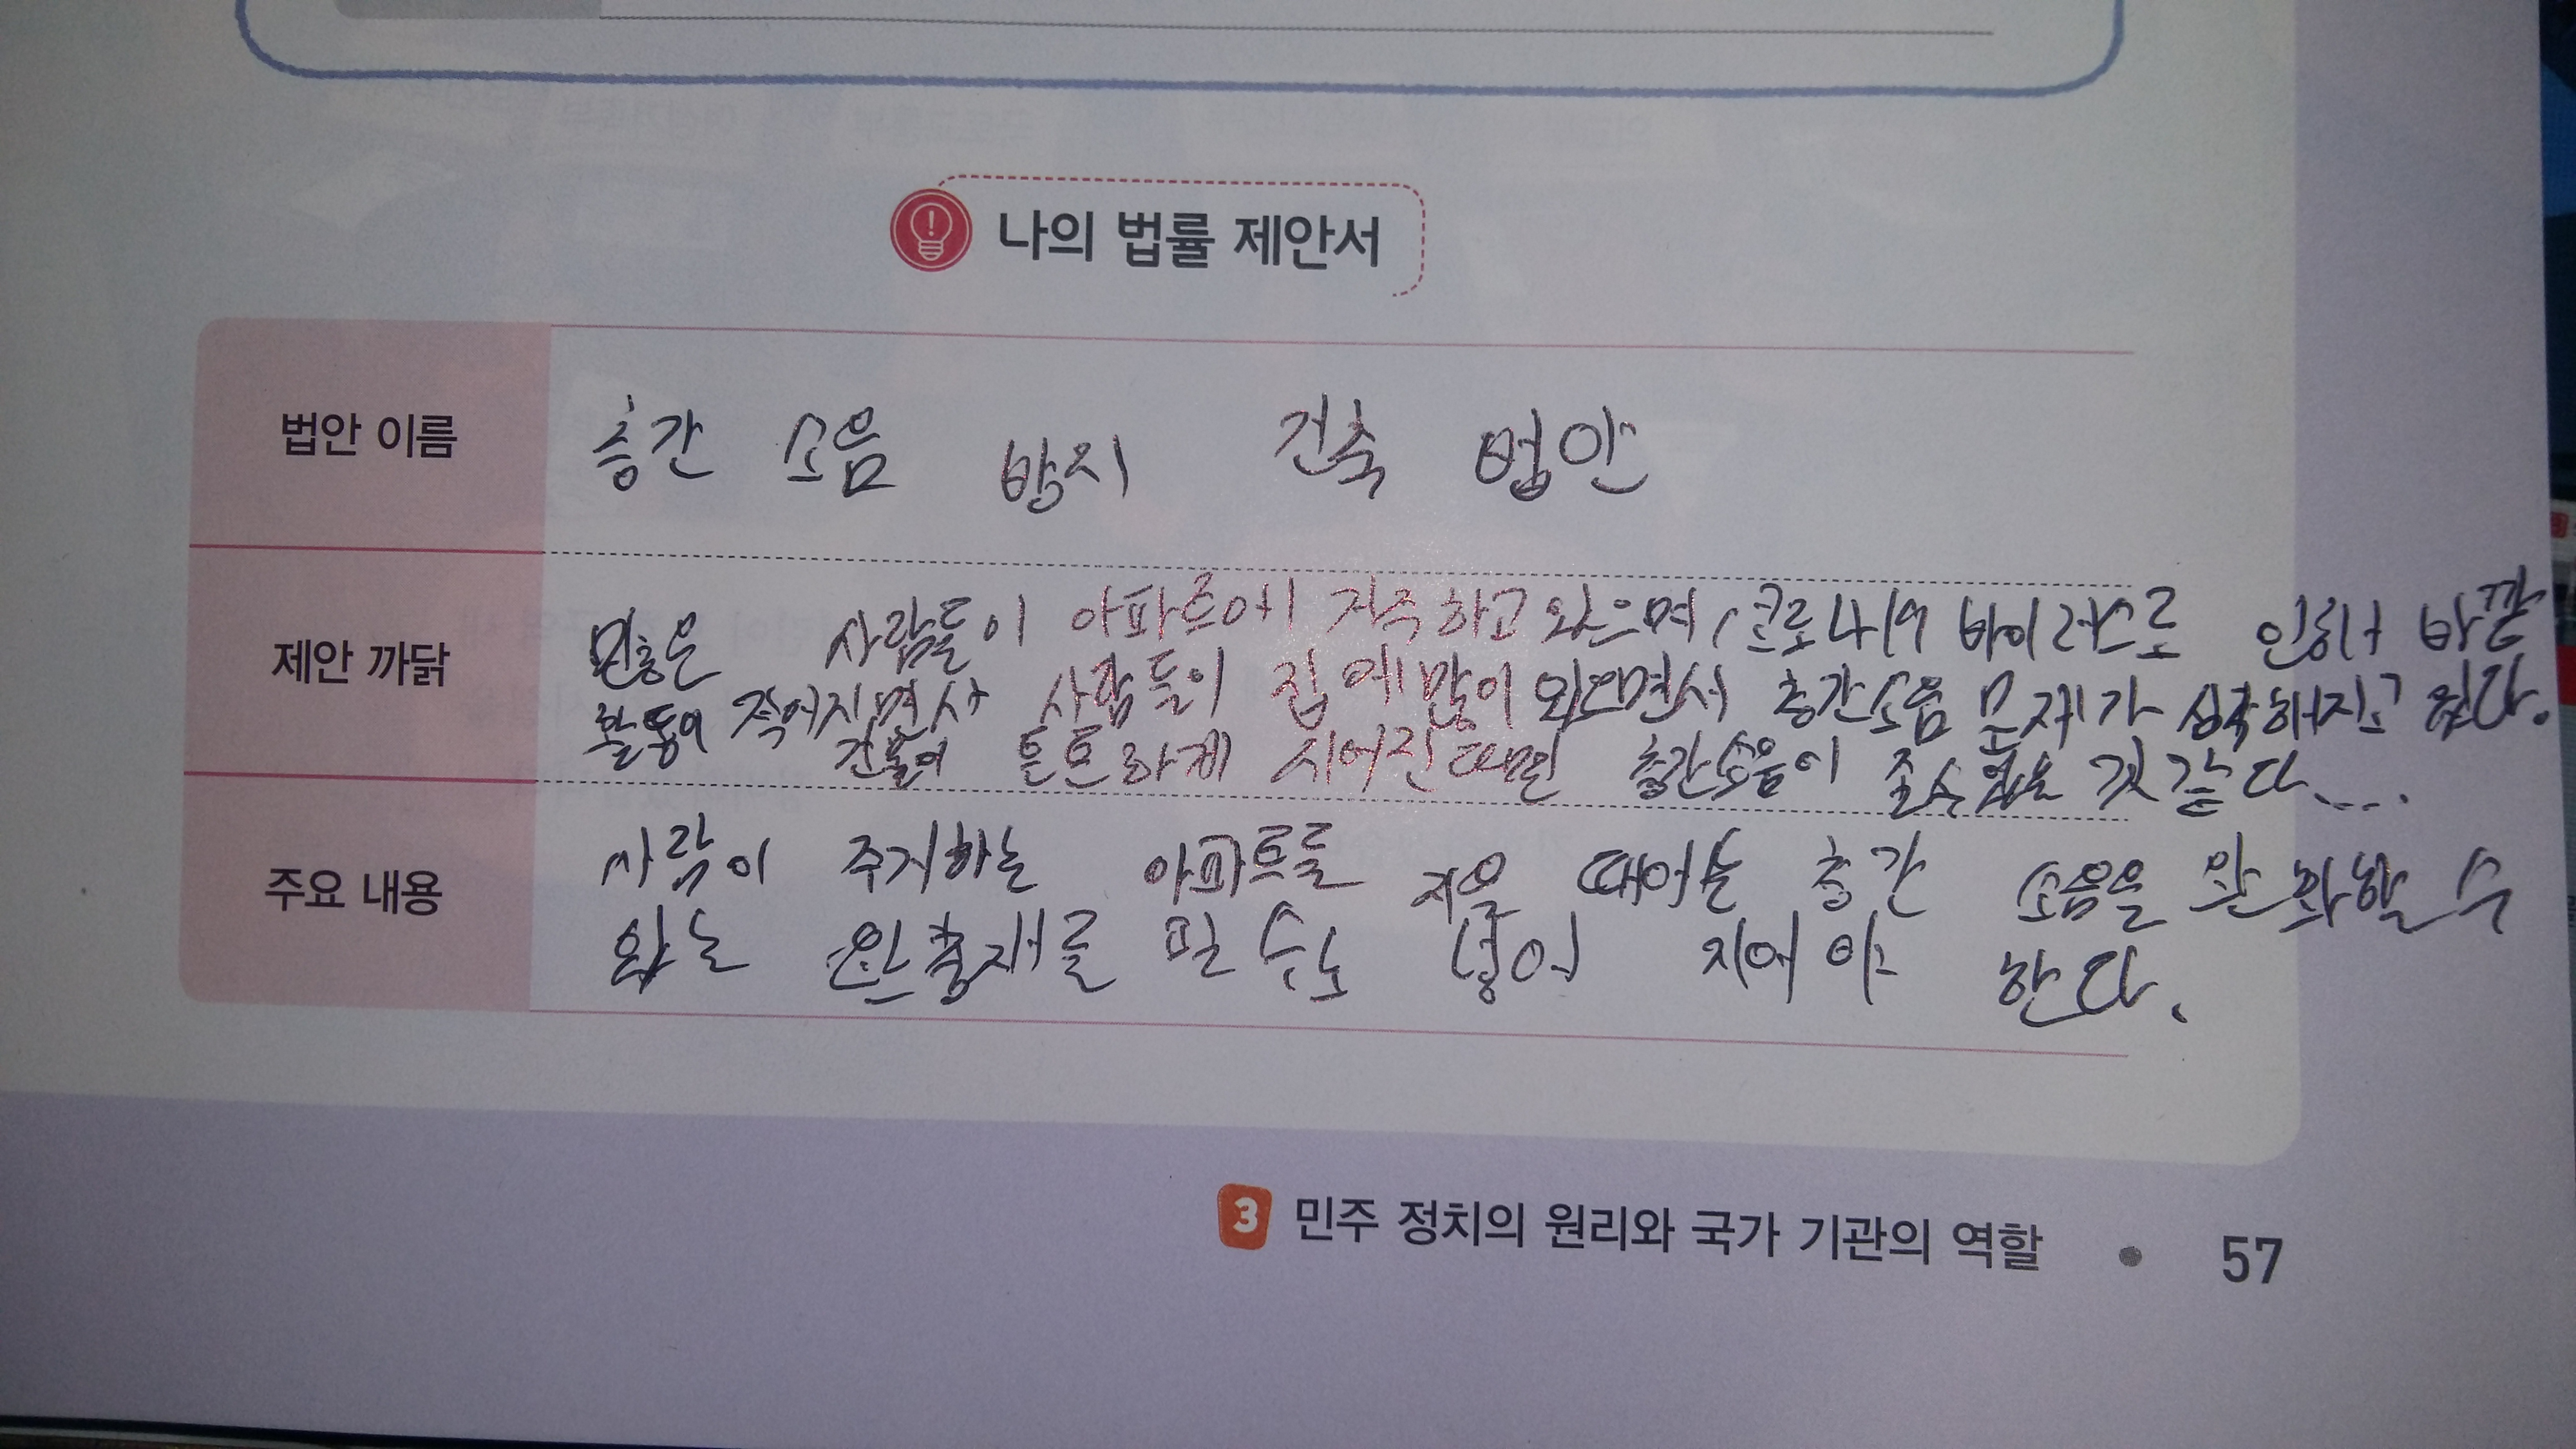 나의 법률 제안서
법안 이름
층간 소음 방지 건축 법안
제안 까닭
많은 사람들이 아파트에 거주하고 있으며, 코로나19 바이러스로 인해서 바깥
활동이 적어지면서 사람들이 집에 많이 있으면서 층간소음 문제가 심각해지고 있다.
건물이 튼튼하게 지어진다면 층간소음이 줄 수 있을 것 같다....
주요 내용
사람이 주거하는 아파트를 지을 때에는 층간 소음을 완화할 수
있는 완충재를 필수로 넣어 지어야 한다.
3 민주 정치의 원리와 국가 기관의 역할 • 57